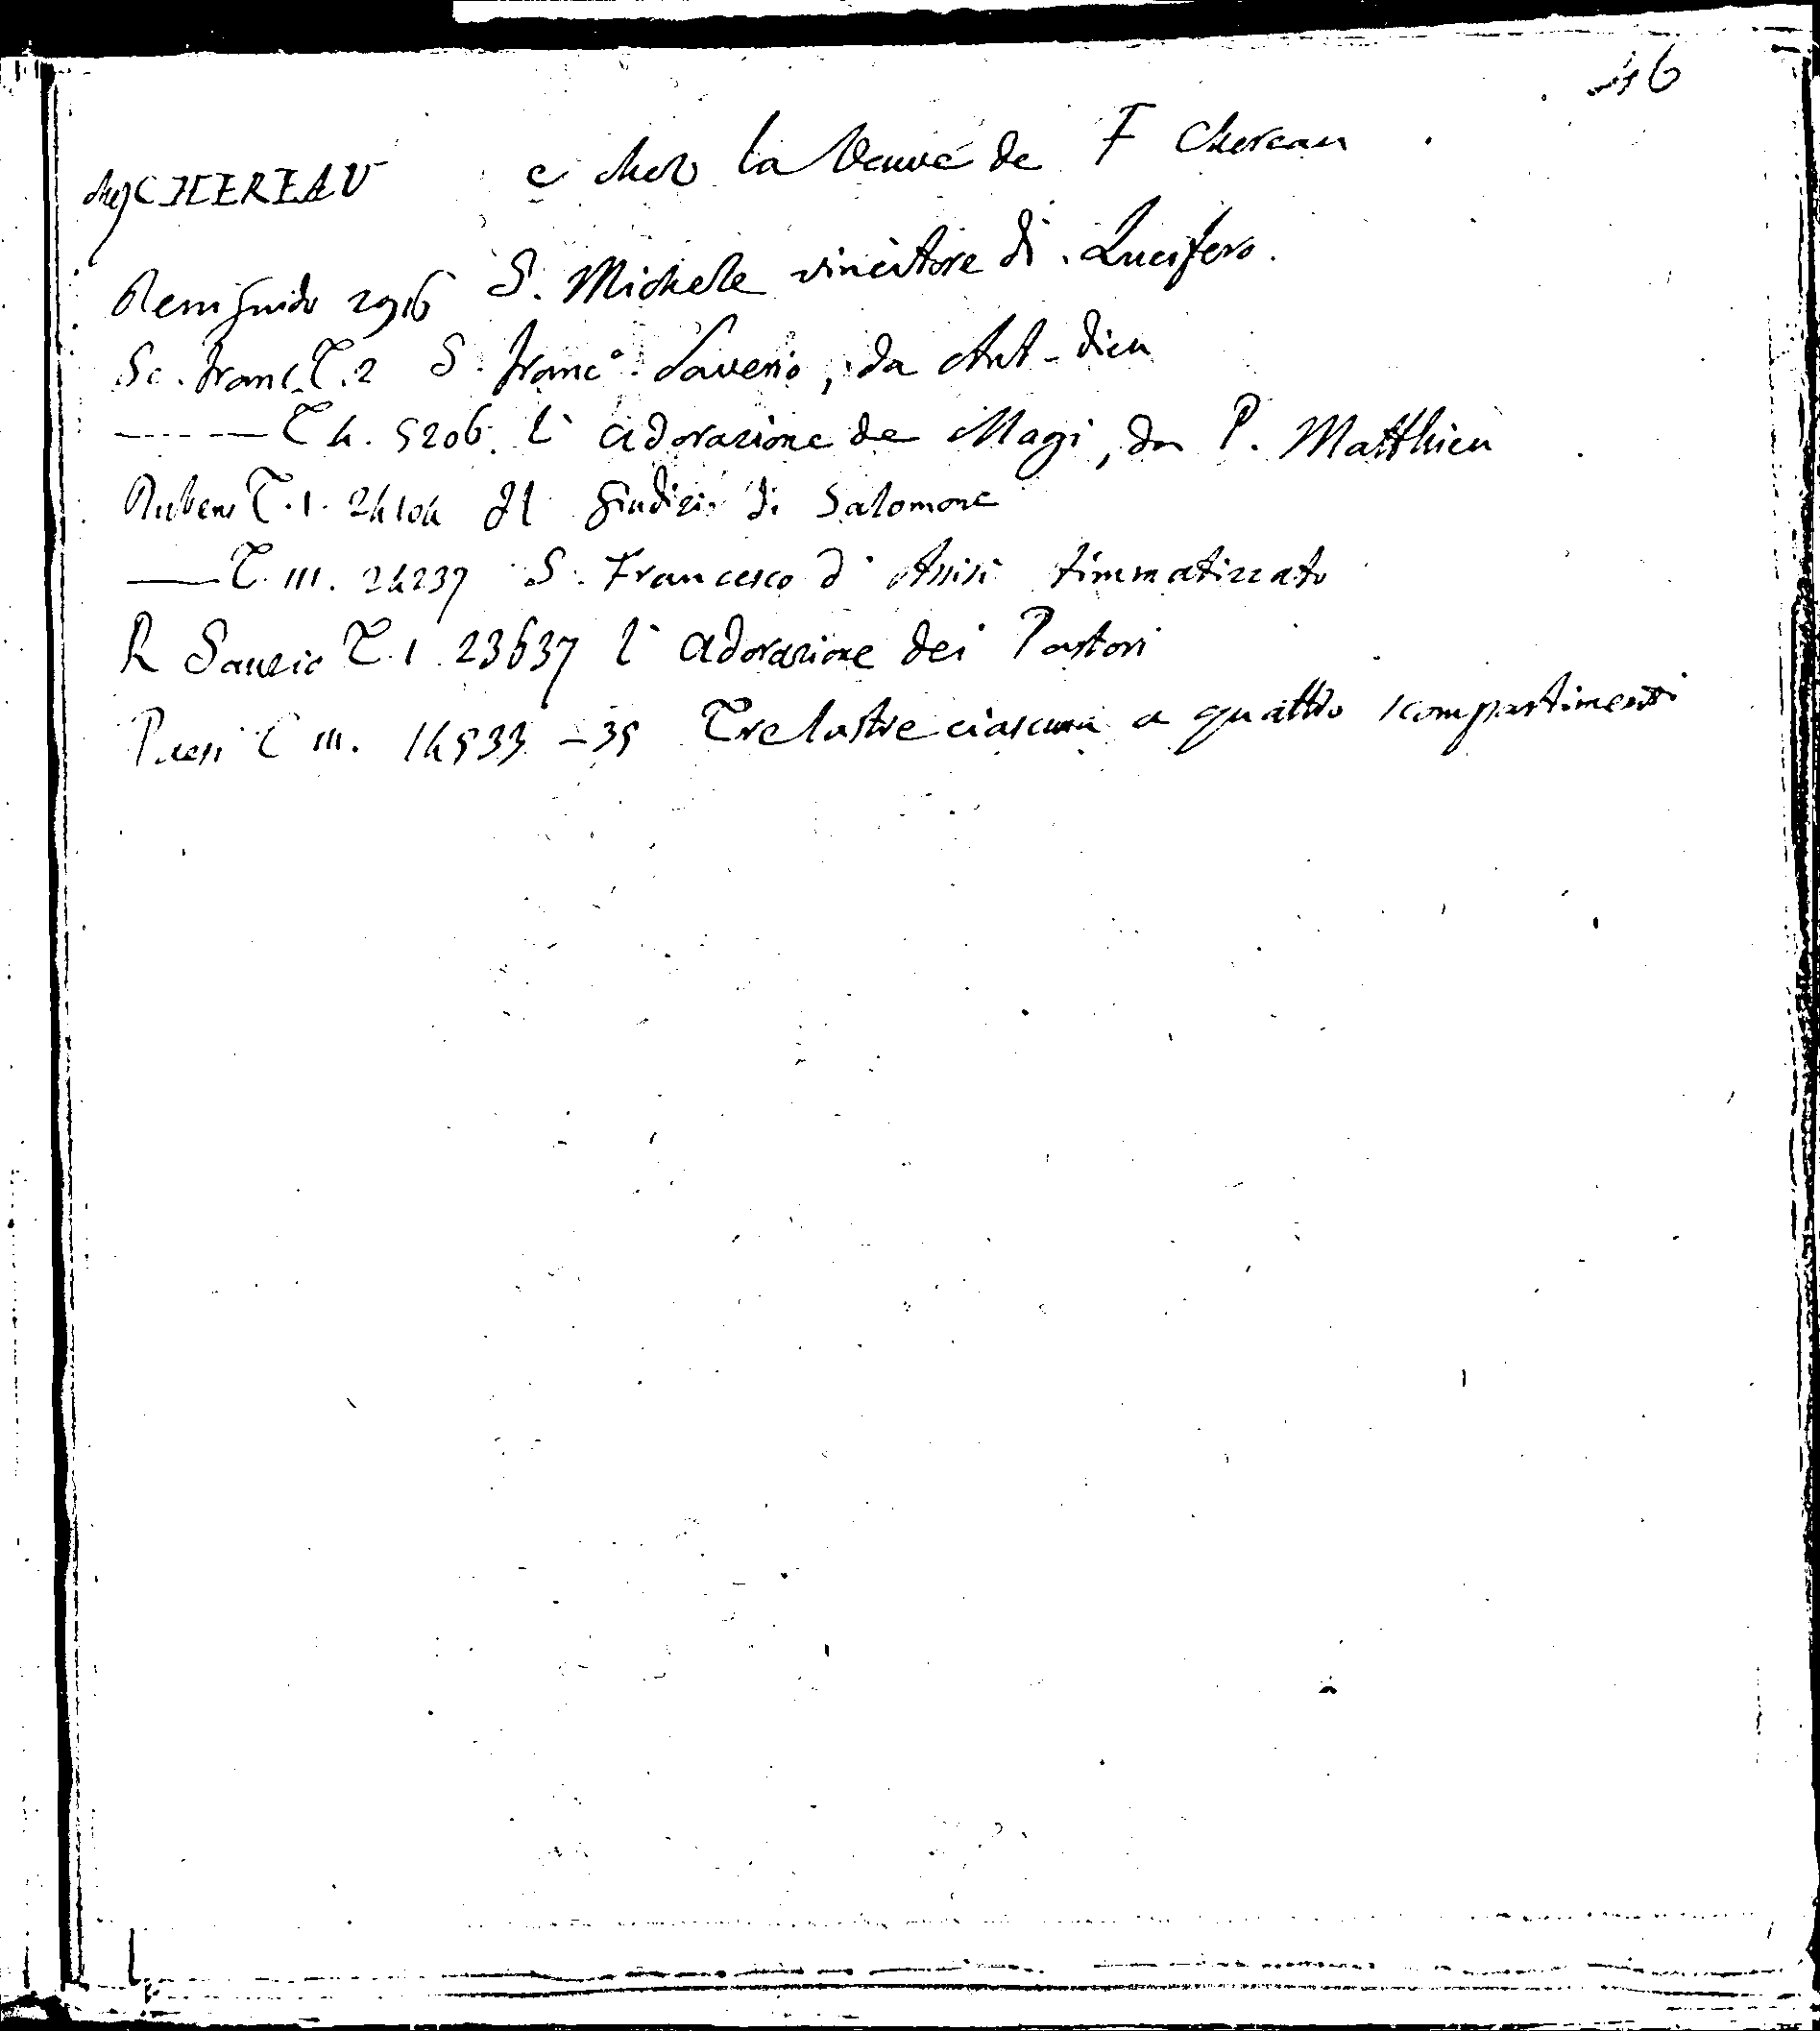 46
chez CHEREAU e chez la Veuve de F Chereau
Reni Guido 2916 S. Michele vincitore di Lucifero.
Sc. Franc. T. 2 S. Franc.° Saverio, da Ant-Dieu
——— T 4. 5206. l'adorazione de Magi, da P. Matthieu
Rubens T. 1. 24104 Il Giudizio di Salomone
—— T. III. 24237 S. Francesco d'Assisi timmatizzato
R Sanzio T. 1 23637 l'adorazione dei Pastori
Paesi T III. 14533 - 35 Tre lastre ciascuna a quattro scompartimenti